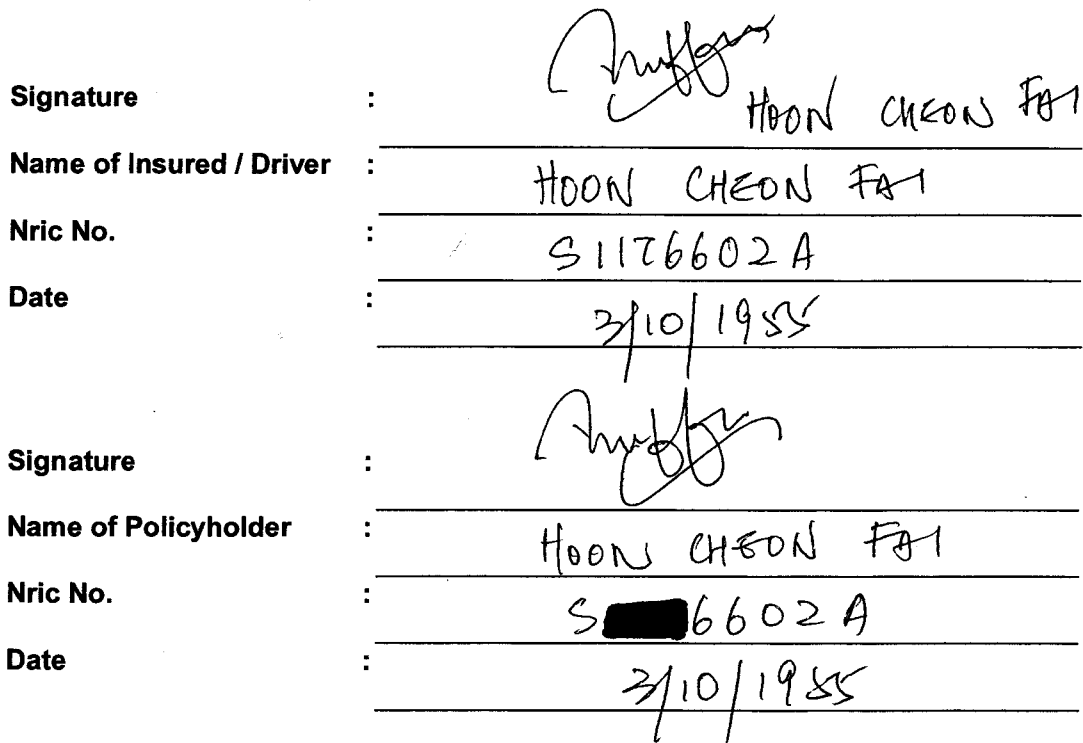 Signature :
HOON CHEON FAI
Name of Insured / Driver : HOON CHEON FAI
Nric No. : S1176602A
Date : 3/10/1955
Signature :
Name of Policyholder : HOON CHEON FAI
Nric No. : S 6602A
Date : 3/10/1955